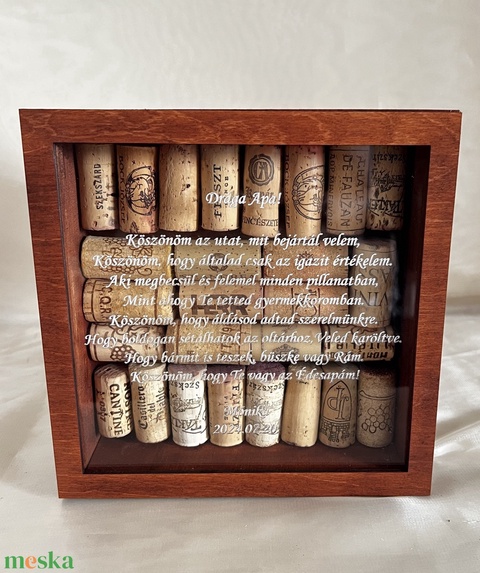 Drága Apa!
Köszönöm az utat, mit bejártál velem,
Köszönöm, hogy általad csak az igazit értékelem.
Aki megbecsül és felemel minden pillanatban,
Mint ahogy Te tetted gyermekkoromban.
Köszönöm, hogy áldásod adtad szerelmünkre.
Hogy boldogan sétálhatok az oltárhoz Veled karöltve.
Hogy bármit is teszek, büszke vagy Rám.
Köszönöm, hogy Te vagy az Édesapám!
Mónika
SZEKSZÁRD
DE PAUZAN
CANTINE
meska